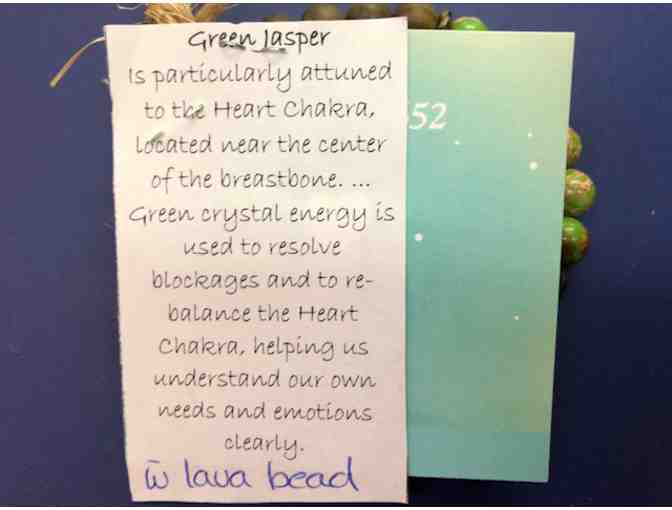 Green Jasper
Is particularly attuned
to the Heart Chakra,
located near the center
of the breastbone. ...
Green crystal energy is
used to resolve
blockages and to re-
balance the Heart
Chakra, helping us
understand our own
needs and emotions
clearly.
w̄ lava bead
52